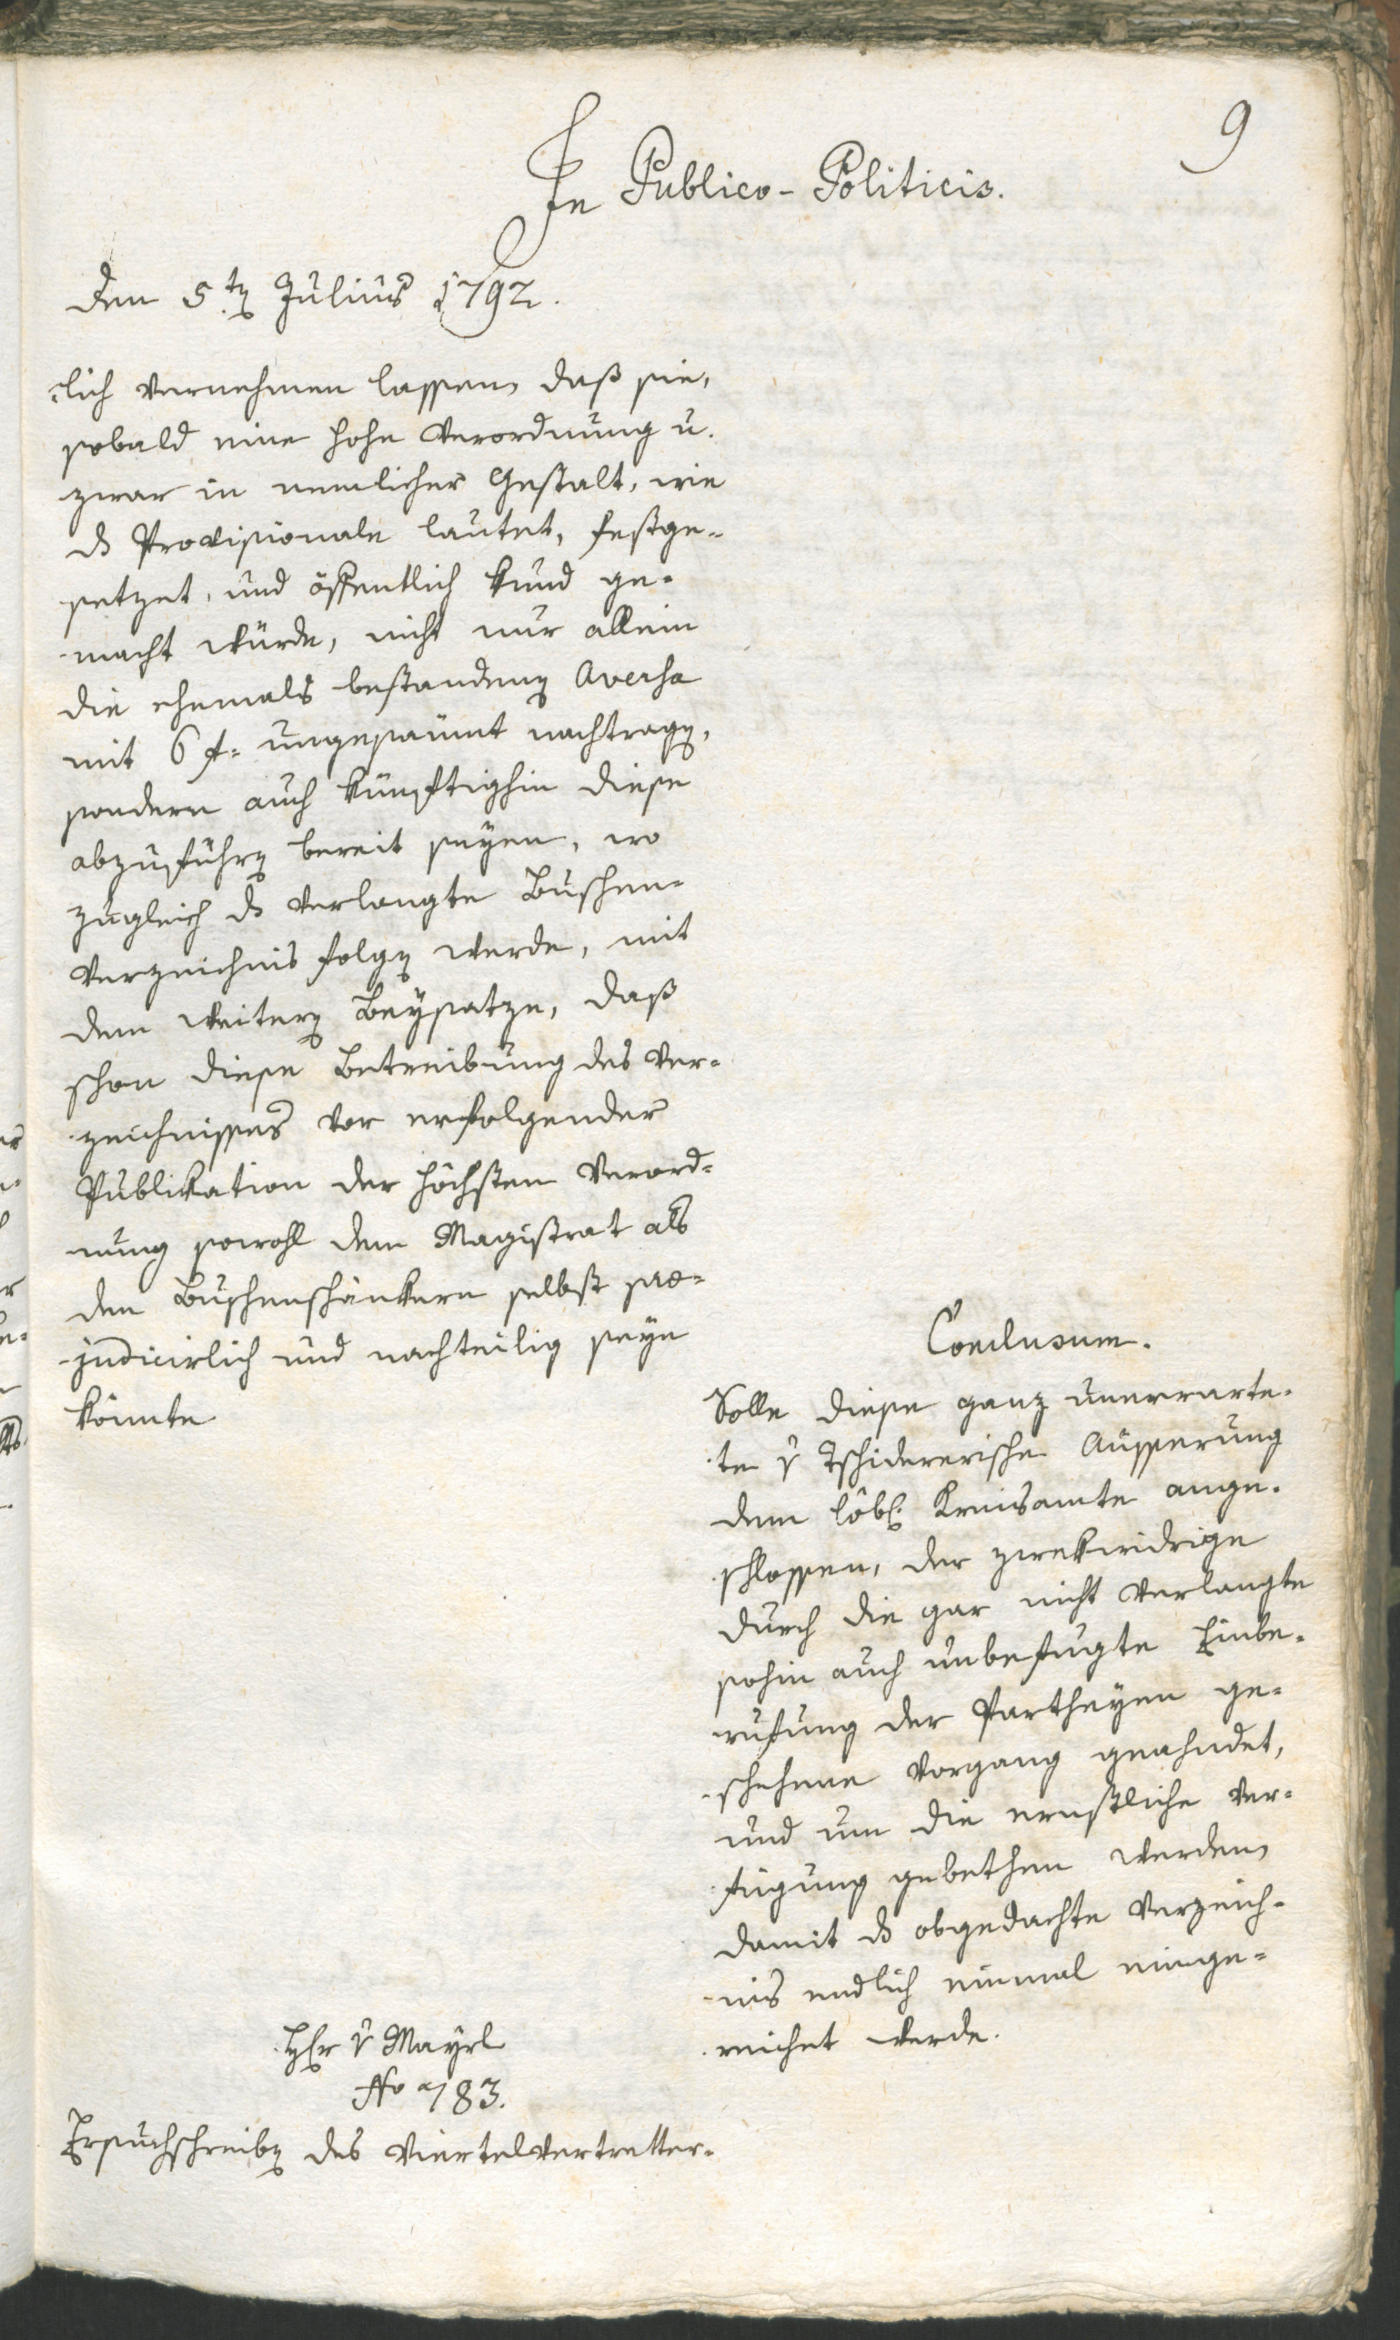 9
In Publico-Politicis.
den 5.ten Julius 1792.
lich vernehmen lassen, daß sie,
sobald eine hohe Verordnung u.
zwar in nemlicher Gestalt, wie
ds Provisionale lautet, festge-
setzet, und öffentlich kund ge-
macht würde, nicht nur allein
die ehemals bestanden Aversa
mit 6 f. ungesaumt nachtragen,
sondern auch künftighin diese
abzuführen bereit seyen, wo
zugleich ds verlangte Buschen-
verzeichnis folgen werde, mit
dem weitern Beysatze, daß
schon diese Betreibung des Ver-
zeichnisses vor erfolgender
Publikation der höchsten Verord-
nung sowohl dem Magistrat als
den Buschenschänkern selbst prae-
judicirlich und nachteilig seyn
könnte
Conclusum.
Solle diese ganz unerwarte-
te v Tschidererische Äusserung
dem löbl. Kreisamte ange-
schlossen, der zwekwidrige
durch die gar nicht verlangte
sohin auch unbefugte Einbe-
rufung der Partheyen ge-
schehene Vorgang geahndet,
und um die ernstliche Ver-
fügung gebethen werden,
damit ds obgedachte Verzeich-
nis endlich einmal einge-
reichet werde.
Hr v Mayrl
No 783.
Ersuchschreiben des Viertelvertretter-